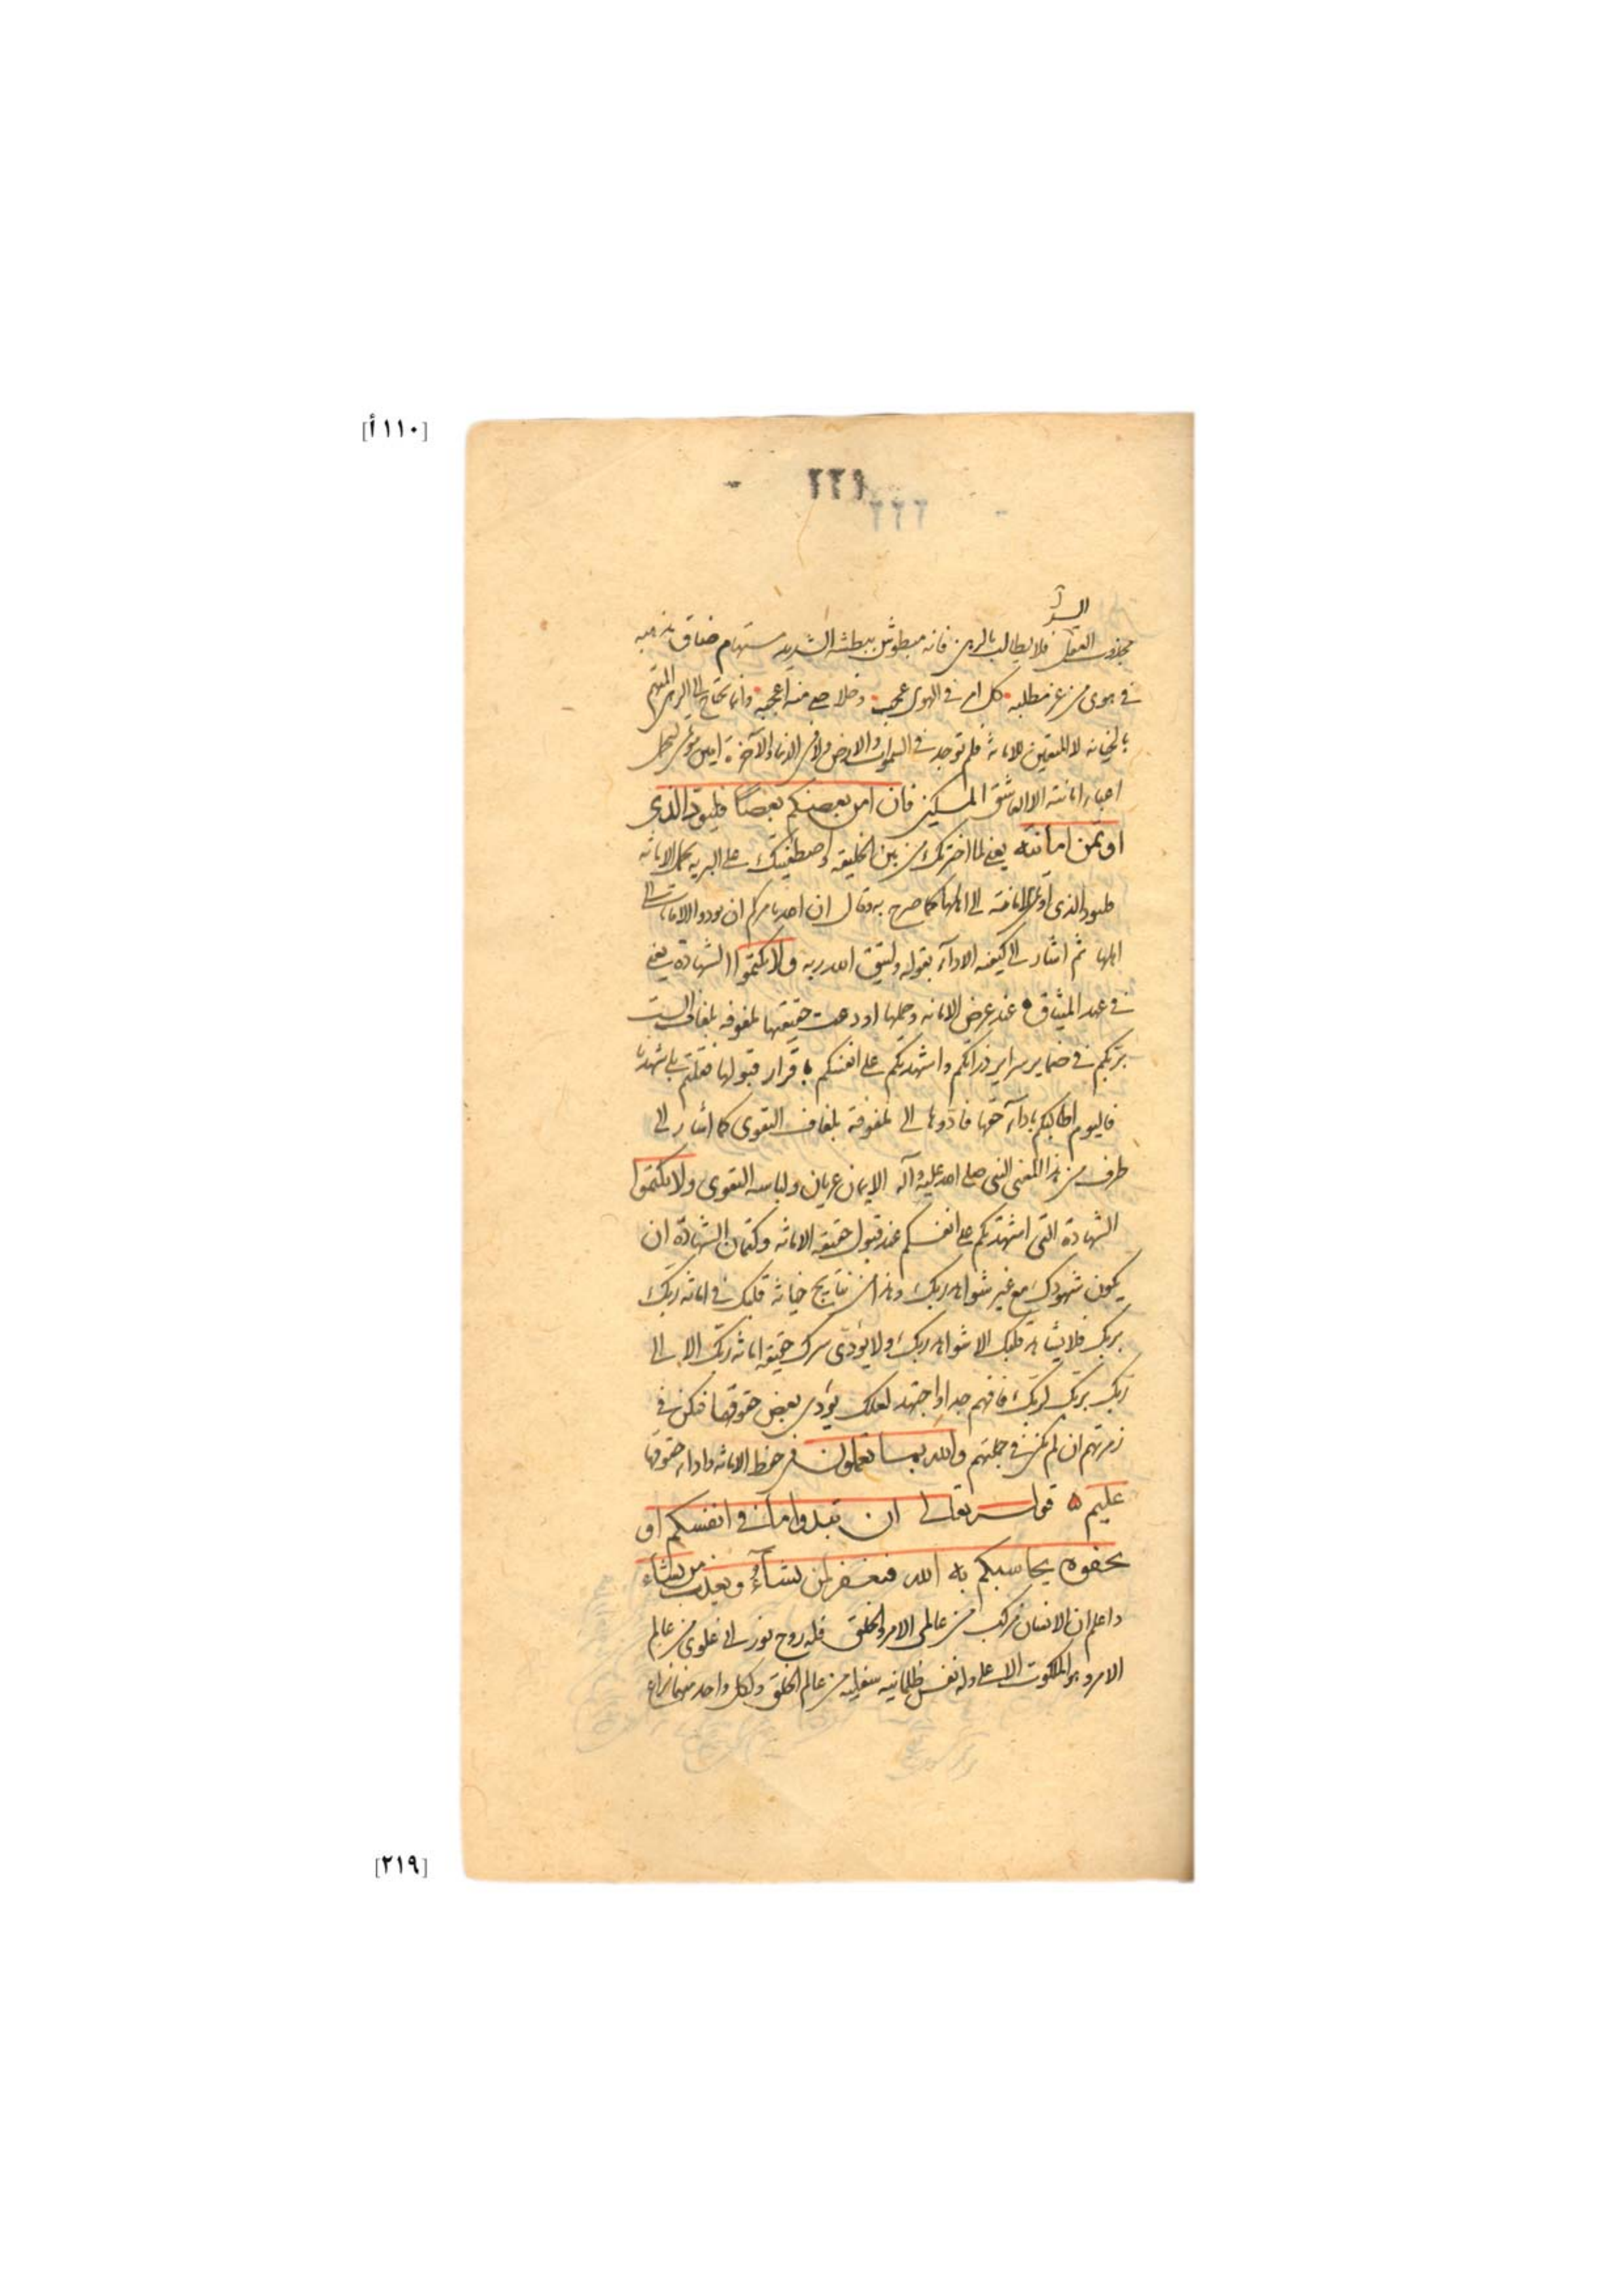 [١١٠أ]
٢٢١
٢٢٢
مجذوب العقل فلا يطالب بالرهن فانه مبطوش ببطشه الشديد مستهام ضاق مذهبه
في هوى من عز مطلبه كل امر في الهوى عجب وخلاصي منه اعجبه وانما يحتاج الى الرهن المتهم
بالخيانه لا المتعين للامانة فلم توجد في السموات والارض ولا في الدنيا والآخرة امين مؤتمن لتحمل
اعباء امانته الا العاشق المسكين فان امن بعضكم بعضا فليؤد الذي
اوتمن امانته يعني لما اخترتك من بين الخليقه واصطفيتك على البريه بحمل الامانه
فليود الذي اوتمن امانته الى اهلها كما صرح به وقال ان الله يامركم ان تودوا الامانات الى
اهلها ثم اشار الى كيفيه الاداء بقوله وليتق الله ربه ولا تكتموا الشهادة يعني
في عهد الميثاق عند عرض الامانه وحملها اودعت حقيقتها ملفوفه بلفافه الست
بربكم في ضماير سراير ذراتكم واشهدتكم على انفسكم باقرار قبولها فقلتم بلى شهدنا
فاليوم اطالبكم باداء حقها فادوها الى ملفوفة بلفاف التقوى كما اشار الى
طرف من هذا المعنى النبي صلى الله عليه وآله الايمان عريان ولباسه التقوى ولا تكتموا
الشهادة التي اشهدتكم على انفسكم عند قبول حقيقه الامانه وكتمان الشهادة ان
يكون شهودك مع غير شواهد ربك وهذا من نتايج خيانة قلبك في امانه ربك
بربك فلا يشاهد قلبك الا شواهد ربك ولا يؤدى سرك حقيقه امانه ربك الا الى
ربك بربك لربك فافهم جدا واجتهد لعلك يؤدى بعض حقوقها فتكن في
زمرتهم ان لم تكن في جملتهم والله بما تعملون في حفظ الامانه واداء حقوقها
عليم قوله تعالى ان تبدوا ما في انفسكم او
تخفوه يحاسبكم به الله فيغفر لمن يشآء ويعذب من يشاء
واعلم ان الانسان مركب من عالمى الامر والخلق فله روح نورانى علوى من عالم
الامر وهو الملكوت الاعلى وله نفس ظلمانيه سفليه من عالم الخلق ولكل واحد منهما نزاع
[٢١٩]